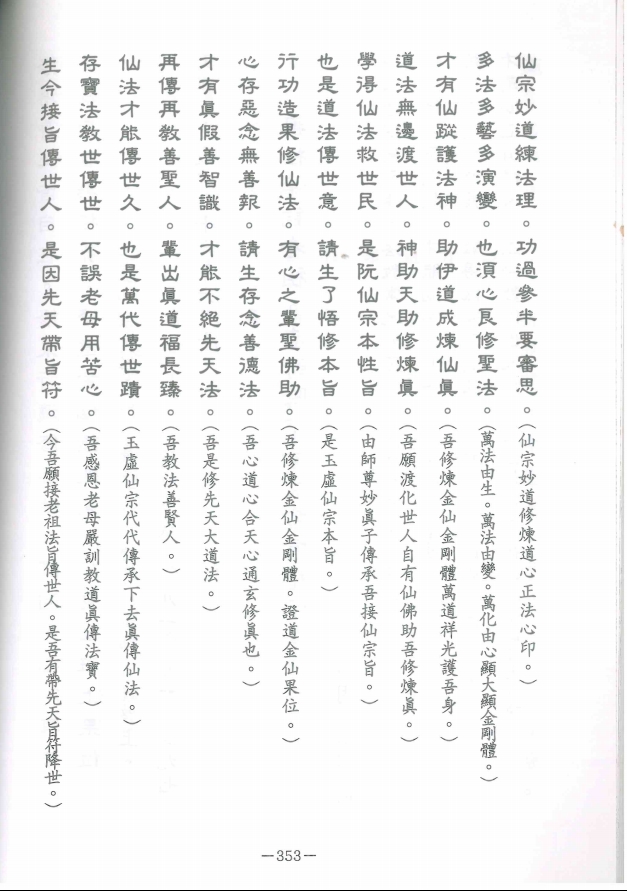 仙宗妙道練法理。功過參半要審思。(仙宗妙道修煉道心正法心印。)
多法多藝多演變。也須心良修聖法。(萬法由生。萬法由變。萬化由心顯大顯金剛體。)
才有仙蹤護法神。助伊道成煉仙眞。(吾修煉金仙金剛體萬道祥光護吾身。)
道法無邊渡世人。神助天助修煉眞。(吾願渡化世人自有仙佛助吾修煉眞。)
學得仙法救世民。是阮仙宗本性旨。(由師尊妙眞子傳承吾接仙宗旨。)
也是道法傳世意。請生了悟修本旨。(是玉虛仙宗本旨。)
行功造果修仙法。有心之輩聖佛助。(吾修煉金仙金剛體。證道金仙果位。)
心存惡念無善報。請生存念善德法。(吾心道心合天心通玄修眞也。)
才有眞假善智識。才能不絕先天法。(吾是修先天大道法。)
再傳再教善聖人。輩出眞道福長臻。(吾教法善賢人。)
仙法才能傳世久。也是萬代傳世蹟。(玉虛仙宗代代傳承下去眞傳仙法。)
存寶法教世傳世。不誤老母用苦心。(吾感恩老母嚴訓教道眞傳法寶。)
生今接旨傳世人。是因先天帶旨符。(今吾願接老祖法旨傳世人。是吾有帶先天旨符降世。)
—353—